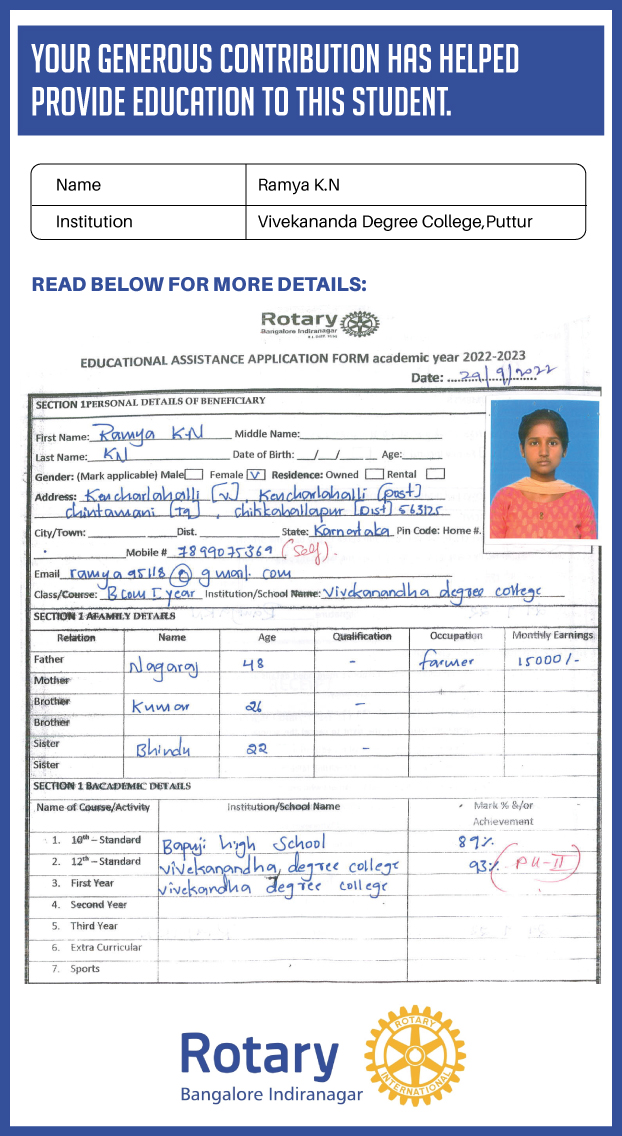 YOUR GENEROUS CONTRIBUTION HAS HELPED
PROVIDE EDUCATION TO THIS STUDENT.
Name Ramya K.N
Institution Vivekananda Degree College,Puttur
READ BELOW FOR MORE DETAILS:
Rotary
Bangalore Indiranagar
EDUCATIONAL ASSISTANCE APPLICATION FORM academic year 2022-2023
Date: 29/9/2022
SECTION 1PERSONAL DETAILS OF BENEFICIARY
First Name: Ramya K.N Middle Name:
Last Name: KN Date of Birth: __/__/__ Age:
Gender: (Mark applicable) Male Female V Residence: Owned Rental
Address: Kencharlahalli [V], Kencharlahalli [post]
chintamani [Tq], chikkaballapur [Dist] 563125
City/Town: Dist. State: Karnataka Pin Code: Home #.
Mobile # 7899075369 (Self).
Email ramya95118@gmail.com
Class/Course: B com I year Institution/School Name: Vivekanandha degree college
SECTION 1 AFAMILY DETAILS
Relation Name Age Qualification Occupation Monthly Earnings
Father Nagaraj 48 - farmer 15000/-
Mother
Brother Kumar 26 -
Brother
Sister Bhindu 22 -
Sister
SECTION 1 BACADEMIC DETAILS
Name of Course/Activity Institution/School Name Mark % &/or
Achievement
1. 10th – Standard Bapuji high School 89%
2. 12th – Standard vivekanandha degree college 93% (PU-II)
3. First Year vivekandha degree college
4. Second Year
5. Third Year
6. Extra Curricular
7. Sports
Rotary
Bangalore Indiranagar
ROTARY
INTERNATIONAL